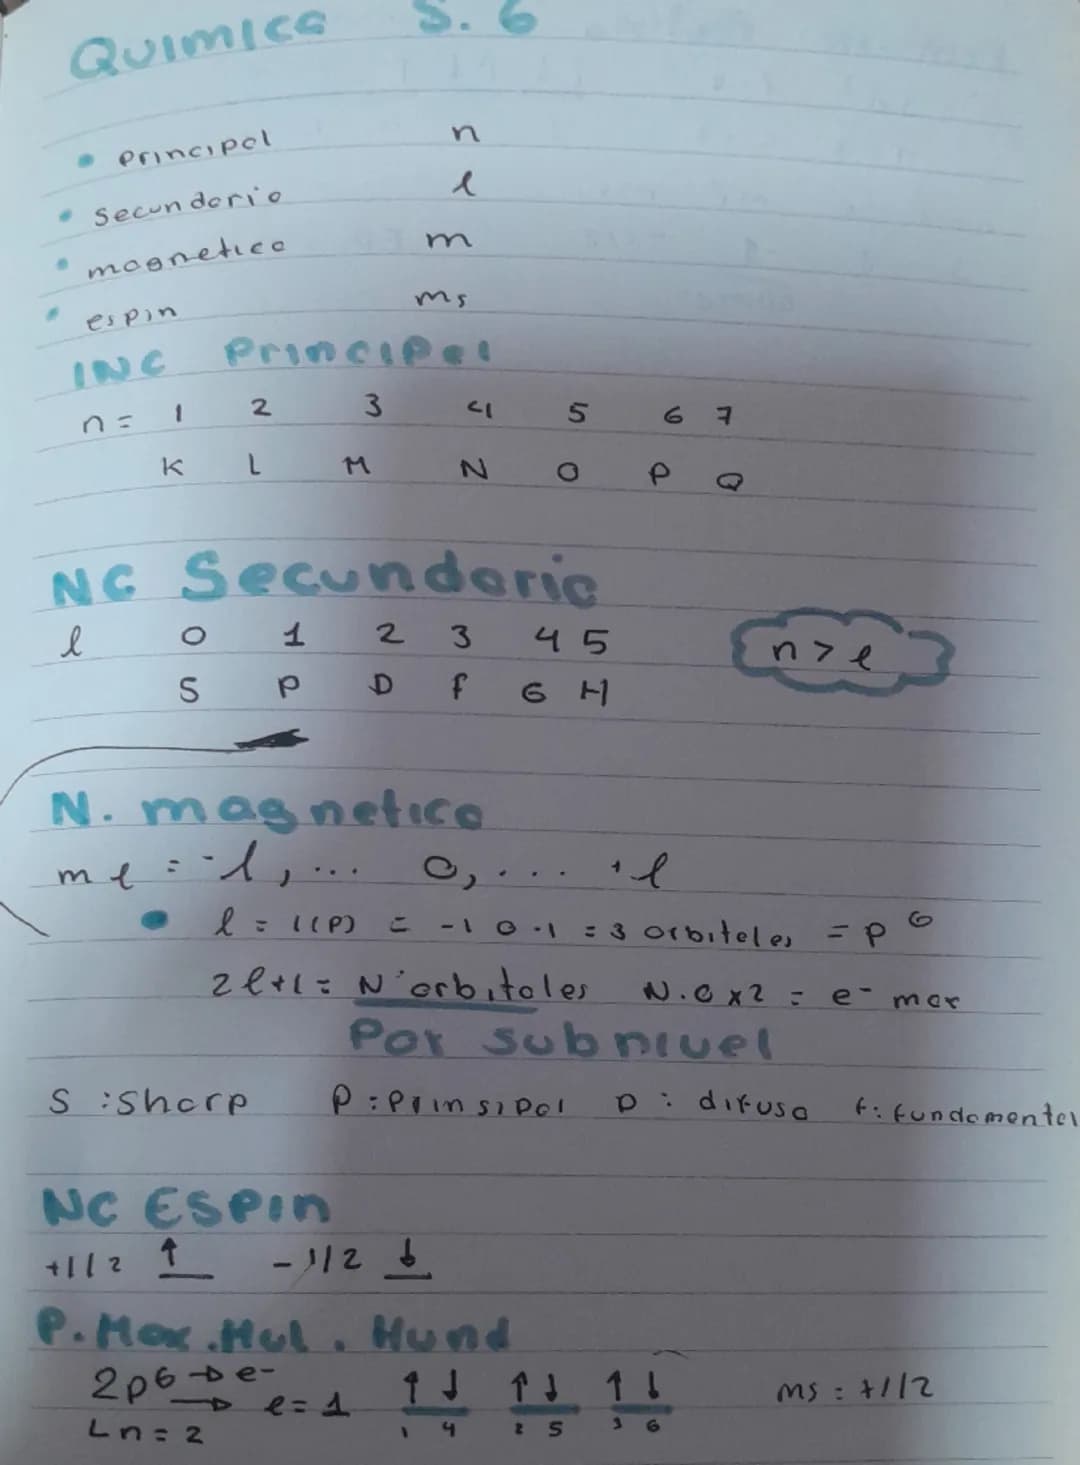 Quimica S. 6
• principal n
• secundario l
• magnetico m
• espin ms
INC Principal
n = 1 2 3 4 5 6 7
K L M N O P Q
NC Secundario
l 0 1 2 3 4 5
n > l
S P D f G H
N. magnetico
ml = -l, ... 0, ... +l
• l = 1(P) = -1 0 -1 = 3 orbitales = p⁶
2l+1 = N° orbitales N.O x2 = e⁻ max
Por subnivel
S : sharp P : Prinsipal D : difusa f : fundamental
NC ESPIN
+1/2 ↑ -1/2 ↓
P. Max. Mul. Hund
2p6 → e- ↑↓ ↑↓ ↑↓ ms : +1/2
→ l = 1
↳ n = 2 1 4 2 5 3 6